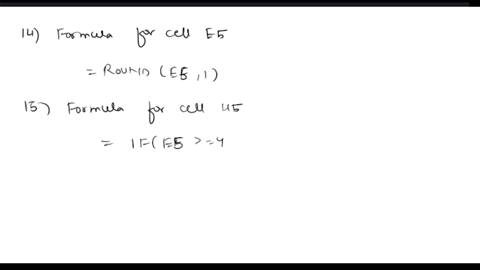 14) Formula for cell E5
= ROUND (E5, 1)
15) Formula for cell H5
= IF( E5 >=4